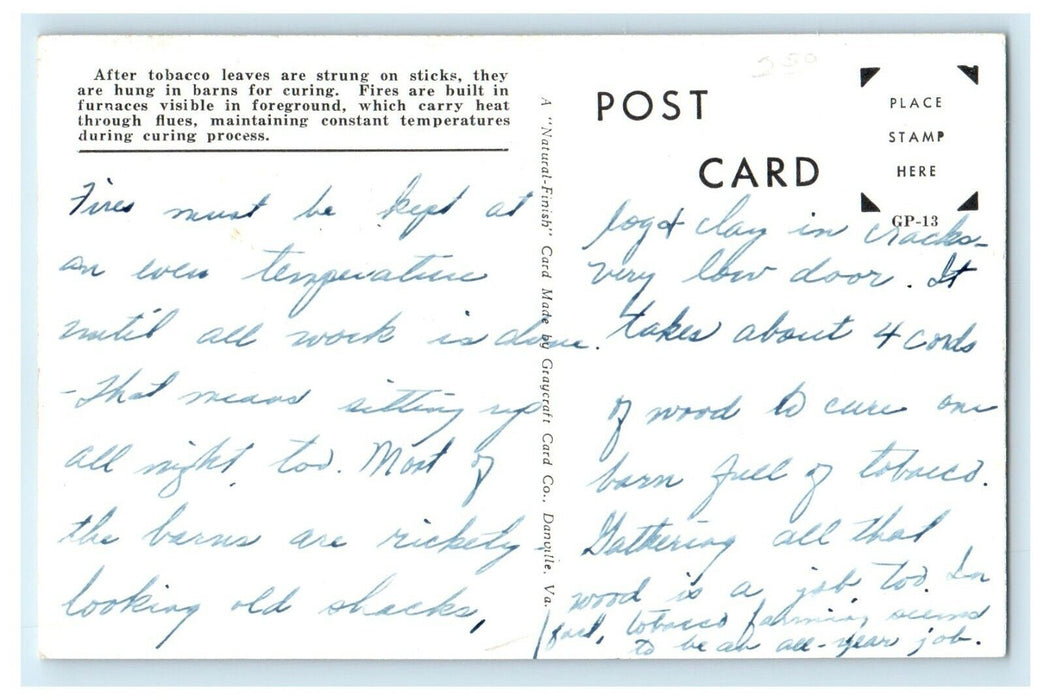 After tobacco leaves are strung on sticks, they
are hung in barns for curing. Fires are built in
furnaces visible in foreground, which carry heat
through flues, maintaining constant temperatures
during curing process.
Fires must be kept at
an even temperature
until all work is done.
-That means sitting up
all night too. Most of
the barns are rickety
looking old shacks,
A "Natural-Finish" Card Made by Graycraft Card Co., Danville, Va.
350
POST
CARD
PLACE
STAMP
HERE
GP-13
log & clay in cracks-
very low door. It
takes about 4 cords
of wood to cure one
barn full of tobacco.
Gathering all that
wood is a job too. In
fact, tobacco farming seems
to be an all-year job.